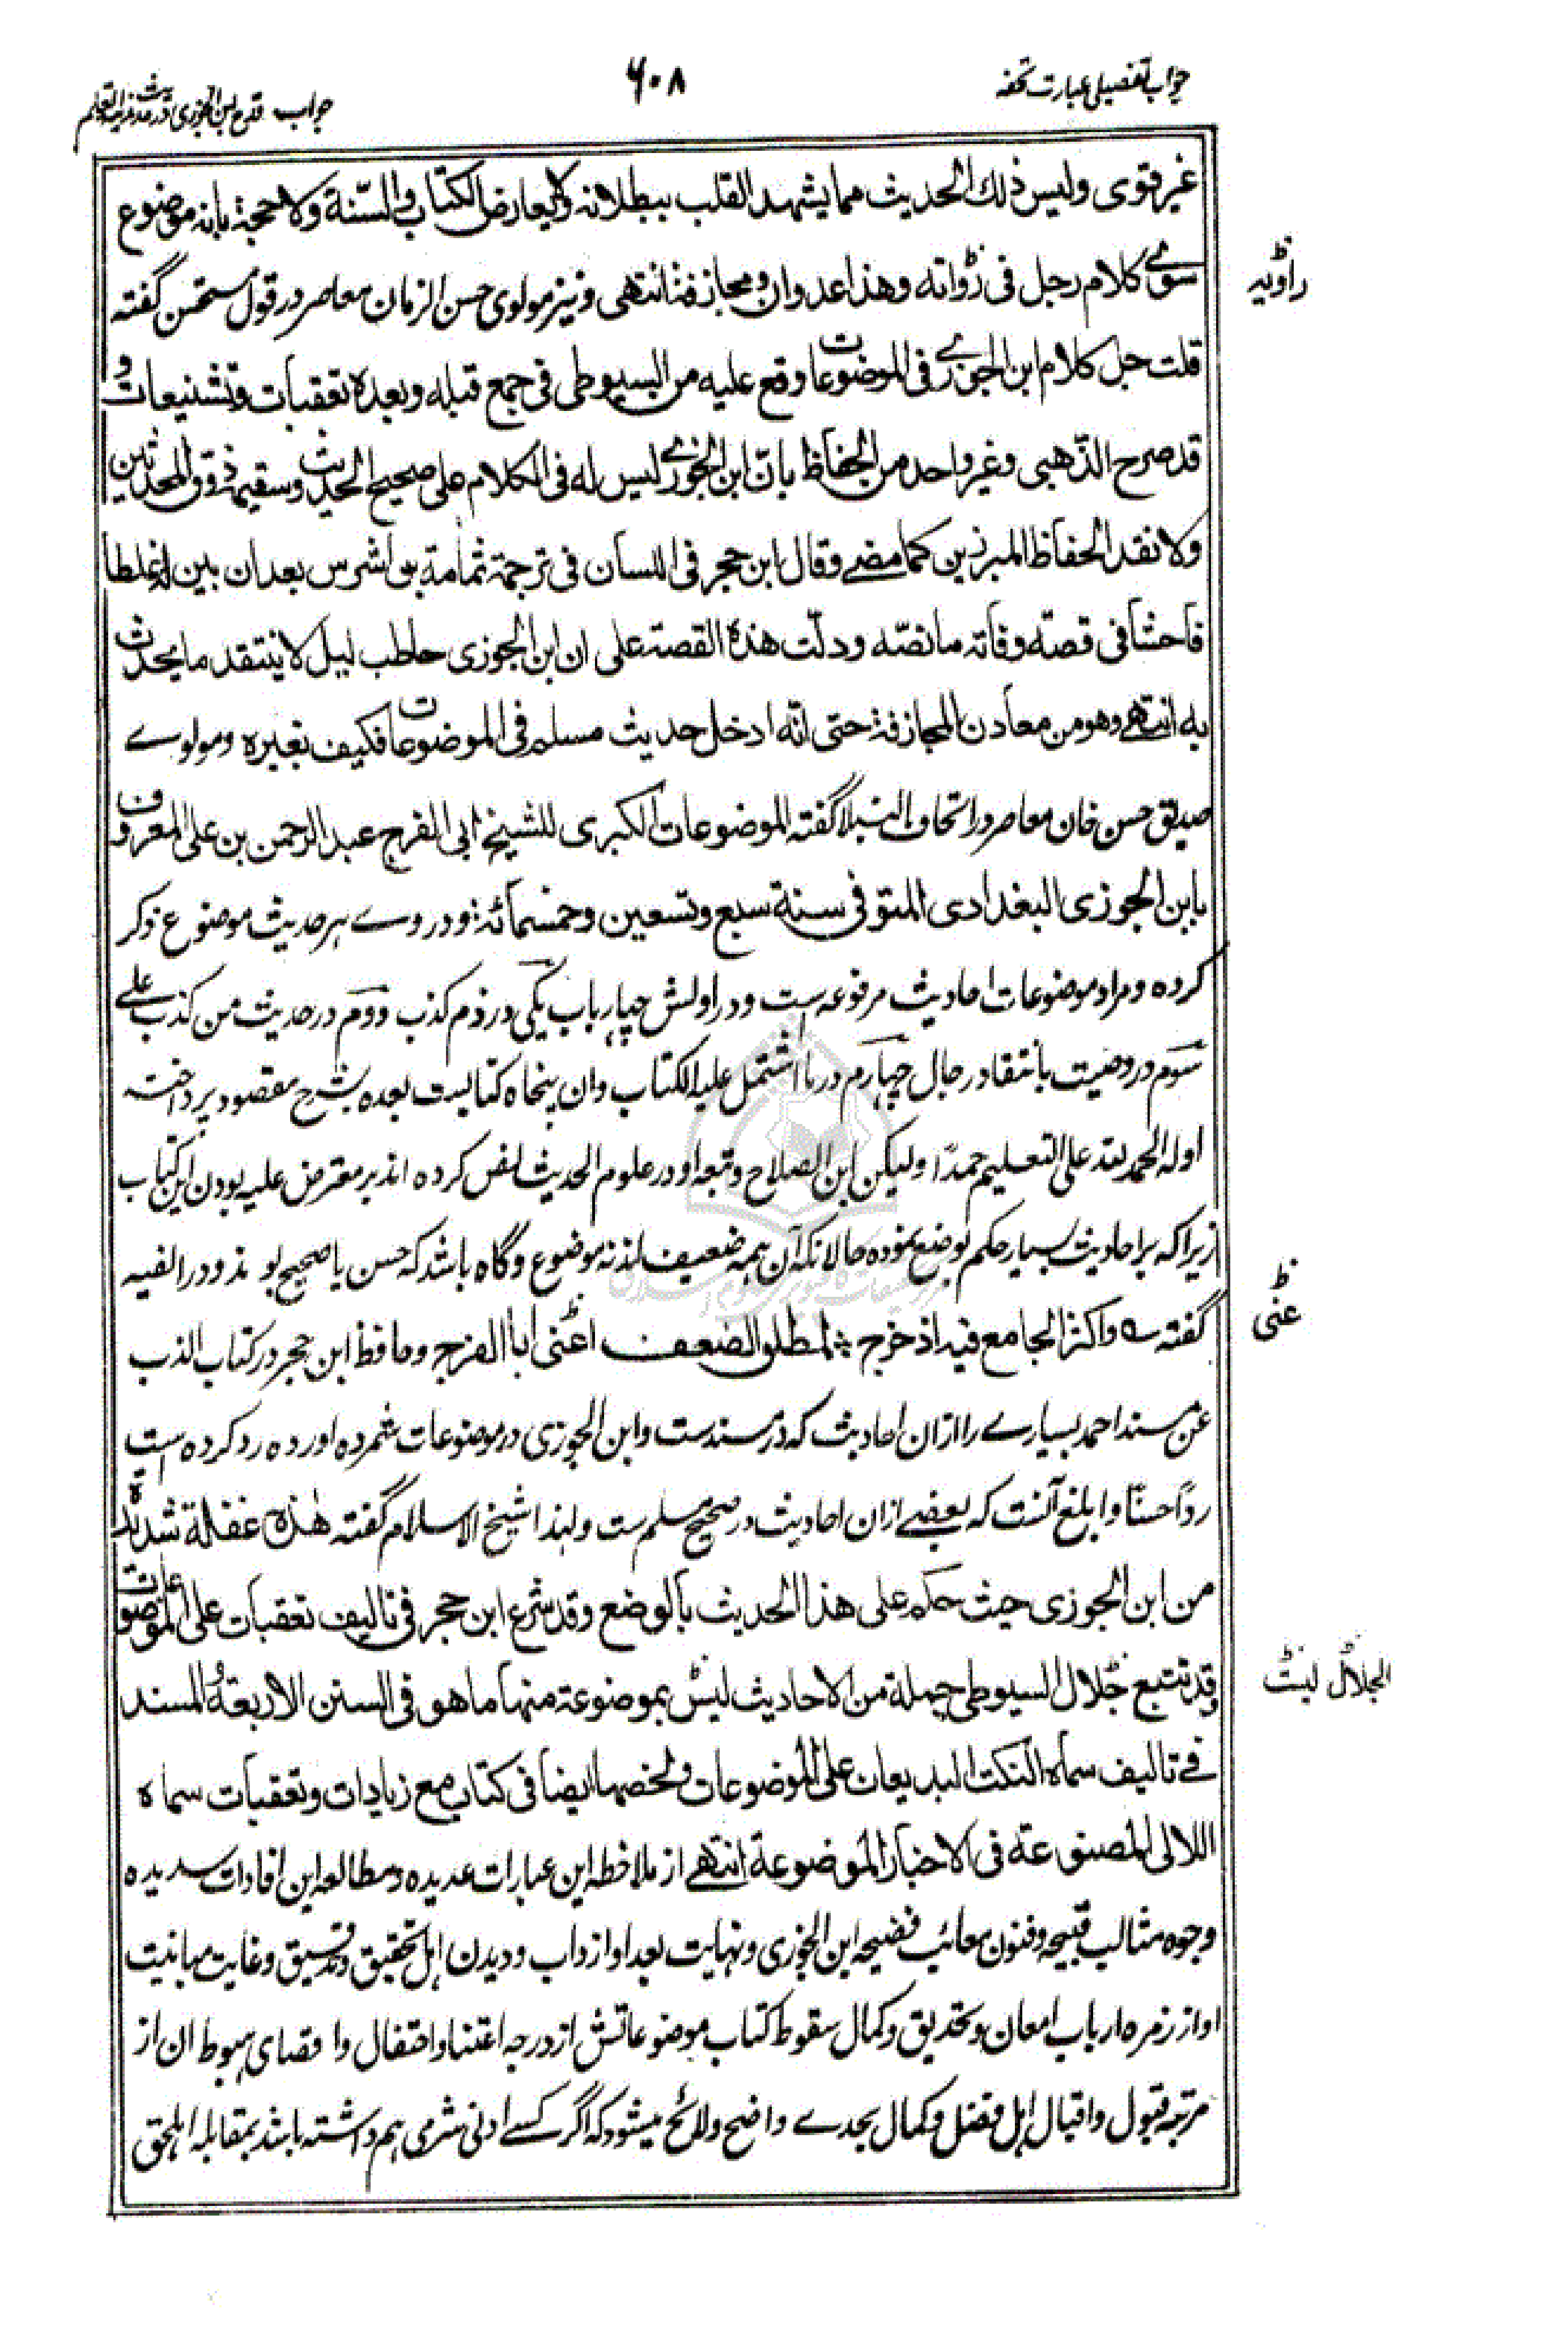 جواب تفصیلی عبارت تحفه
۶۰۸
جواب قدح ابن الجوزی در حدیث مدینة العلم
غیر قوی ولیس ذلك الحدیث مما یشهد القلب ببطلانه ولا یعارض الکتاب والسّنة ولا حجة بانه موضوع
سوے کلام رجل فی رُواته وهذا عدوان ومجازفة انتهی ونیز مولوی حسن الزمان معاصر در قول مستحسن گفته
قلت جل کلام ابن الجوزے فی الموضوعات وقع علیه من السیوطی فی جمع قبله وبعده تعقبات وتشنیعات و
قد صرح الذّهبی وغیر واحد من الحفاظ بانّ ابن الجوزے لیس له فی الکلام علی صحیح الحدیث وسقیمه ذوق المحدثین
ولا نقد الحفاظ المبرزین کما مضے وقال ابن حجر فی اللسان فی ترجمة ثمامة بن اشرس بعد ان بین له غلطا
فاحشا فی قصته وفاته ما نصّه ودلّت هذه القصة علی ان ابن الجوزی حاطب لیل لا ینتقد ما یحدث
به انتهے وهو من معادن المجازفة حتی انّه ادخل حدیث مسلم فی الموضوعات فکیف بغیره ومولوے
صدیق حسن خان معاصر در اتحاف النبلا گفته الموضوعات الکبری للشیخ ابی الفرج عبد الرحمن بن علی المعروف
بابن الجوزی البغدادی المتوفی سنة سبع وتسعین وخمسمائة ودر وے هر حدیث موضوع ذکر
کرده ومراد موضوعات احادیث مرفوعه ست ودر اولش چهار باب یکی در ذم کذب دوم در حدیث من کذب علے
سوم در وصیت بانتقاد رجال چهارم در ما اشتمل علیه الکتاب وان پنجاه کتابست بعده بشرح مقصود پرداخته
اوله الحمد لله علی التعلیم حمدًا ولیکن ابن الصلاح وتبعه او در علوم الحدیث نص کرده اند بر معترض علیه بودن این کتاب
زیرا که بر احادیث بسیار حکم بوضع نموده حالانکه آن همه ضعیف اند نه موضوع وگاه باشد که حسن یا صحیح بود ودر الفیه
گفته ے واکثر الجامع فیه اذ خرج ؛ لمطلق الضعف اعُنی ابا الفرج وحافظ ابن حجر در کتاب الذب
عن مسند احمد بسیارے را ازان احادیث که در مسند ست وابن الجوزی در موضوعات شمرده اورده رد کرده است
ردًا حسنًا وابلغ آنست که بعضے ازان احادیث در صحیح مسلم ست ولهذا شیخ الاسلام گفته هٰذه غفلة شدیدة
من ابن الجوزی حیث حکم علی هذا الحدیث بالوضع وقد شرع ابن حجر فی تالیف تعقبات علی الموضوعات
وقد تتبع جُلال السیوطی جملة من الاحادیث لیسُ بموضوعة منها ما هو فی السنن الاربعة والمسند
فے تالیف سماه النکت البدیعات علی الموضوعات ولخصها ایضا فی کتاب مع زیادات وتعقبات سماه
اللالی المصنوعة فی الاخبار الموضوعة انتهے از ملاحظه این عبارات عدیده ومطالعه این افادات سدیده
وجوه مثالب قبیحه وفنون معائب فضیحه ابن الجوزی ونهایت بعد او از داب ودیدن اهل تحقیق وتدقیق وغایت مباینت
او از زمره ارباب امعان وتحدیق وکمال سقوط کتاب موضوعاتش از درجه اعتنا واحتفال واقصای هبوط ان از
مرتبه قبول واقبال اهل فضل وکمال بحدے واضح ولائح میشود که اگر کسے ادنی شرمی هم داشته باشد بمقابله اهل حق
راویه
عنی
الجلال لیست